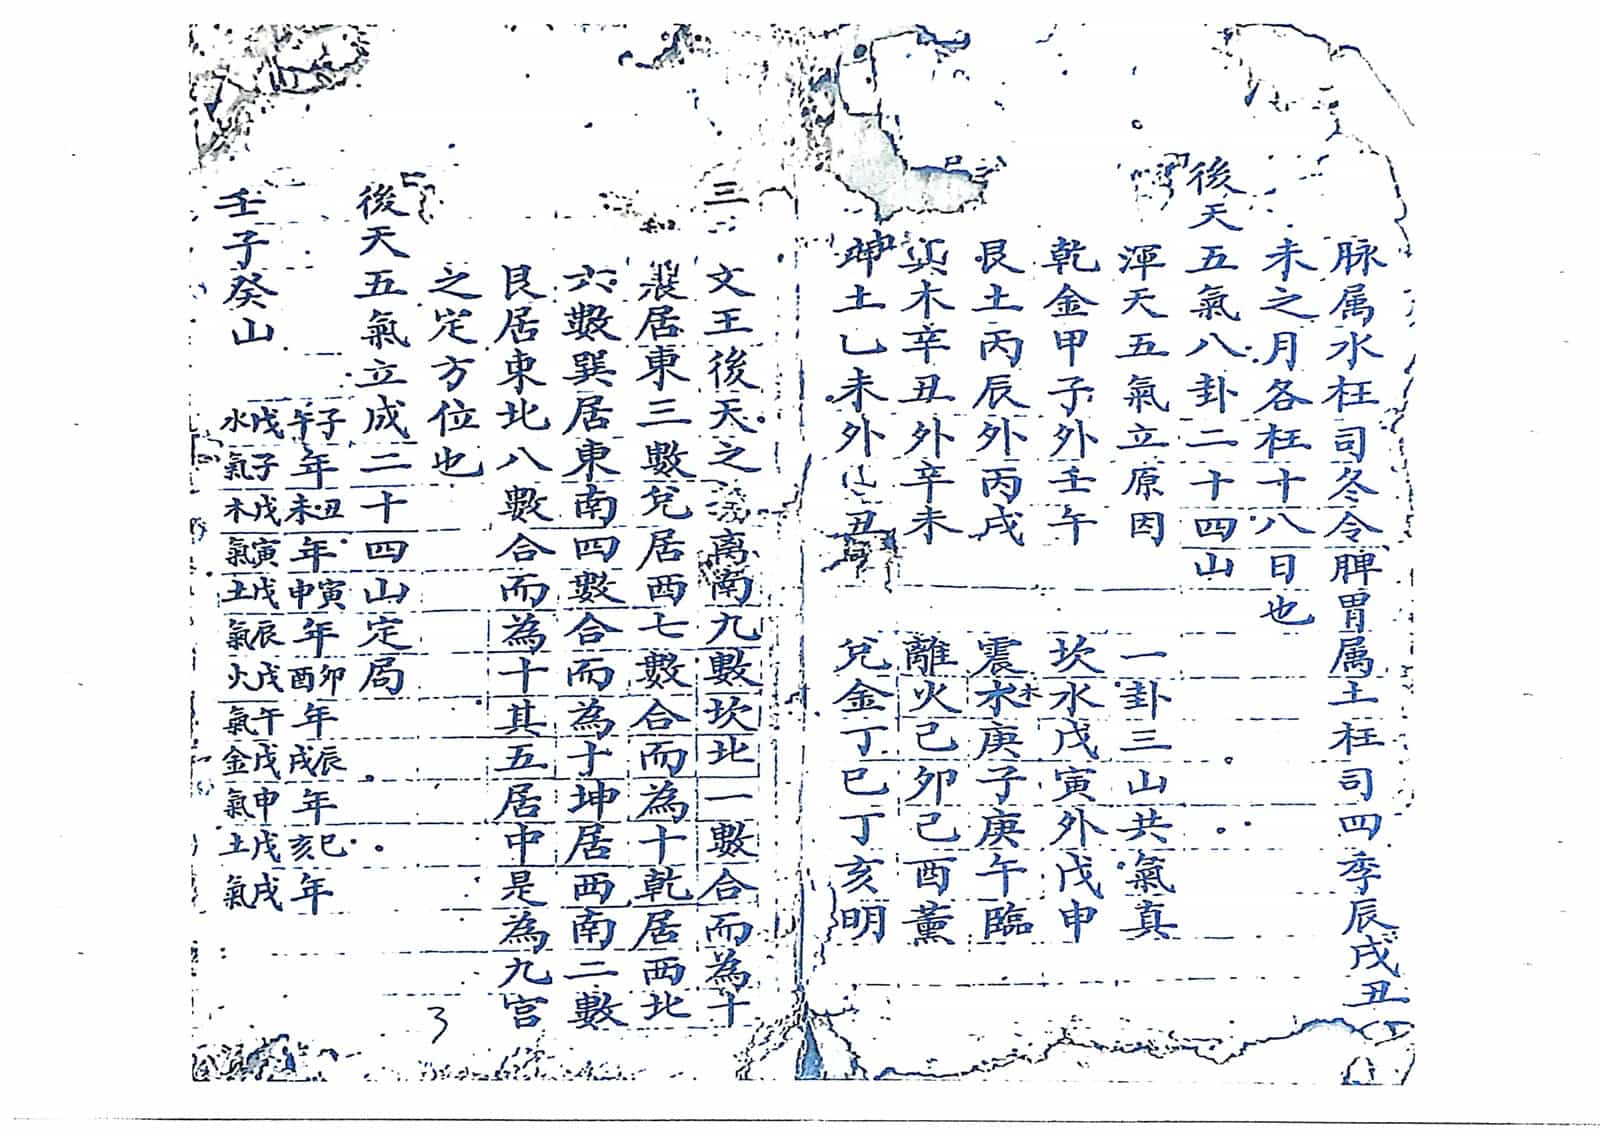 脉属水枉司冬令脾胃属土枉司四季辰戌丑
未之月各枉十八日也
後天五氣八卦二十四山
渾天五氣立原因 一卦三山共氣真
乾金甲子外壬午 坎水戊寅外戊申
艮土丙辰外丙戌 震木庚子庚午臨
巽木辛丑外辛未 離火己卯己酉薰
坤土乙未外丑 兌金丁巳丁亥明
三
文王後天之離南九數坎北一數合而為十
震居東三數兌居西七數合而為十乾居西北
六數巽居東南四數合而為十坤居西南二數
艮居東北八數合而為十其五居中是為九宮
之定方位也
後天五氣立成二十四山定局
壬子癸山
子午年戊子水氣
丑未年戊寅木氣
寅申年戊辰土氣
卯酉年戊午火氣
辰戌年戊申金氣
巳亥年戊戌土氣
3